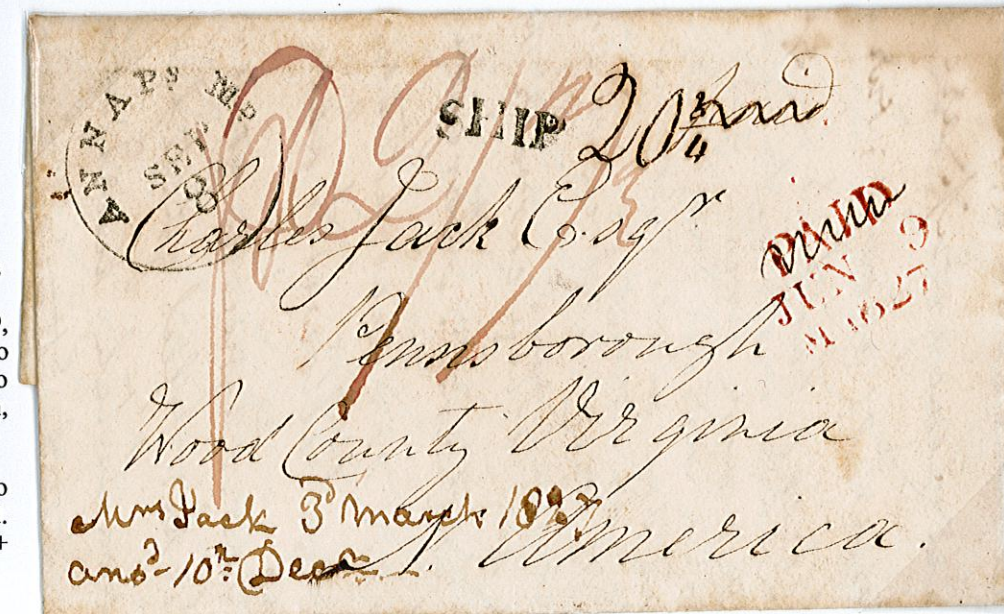 ANNAPS MD
SEP
8
SHIP
20 3/4
PAID
JUN 9
1827
Charles Jack Esqr
Pennsborough
Wood County Virginia
N. America.
Mrs Jack 3d March 1827
ansd 10th Decr